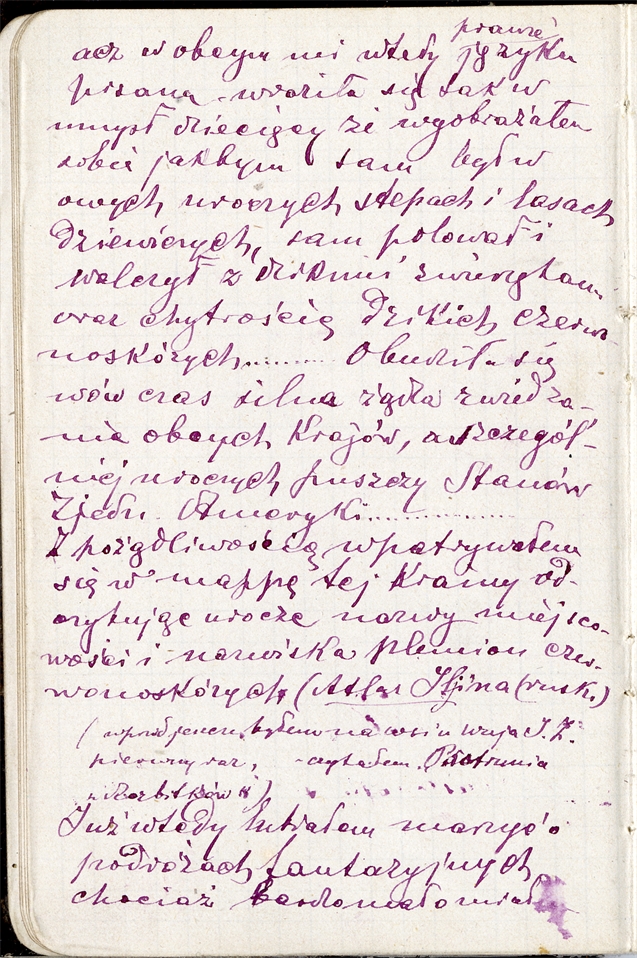 prawie
acz w obcym mi wtedy języku
pisana wraziła się tak w
umysł dziecięcy że wyobrażałem
sobie jakbym sam był w
owych uroczych stepach i lasach
dziewiczych, sam polował i
walczył z dzikimi zwierzętami
oraz chytrością dzikich czerwo-
noskórych......... Obudziła się
wów czas silna żądza zwiedza-
nia obcych Krajów, a szczegól-
niej uroczych puszczy Stanów
Zjedn. Ameryki..............
Z pożądliwością wpatrywałem
się w mappę tej Krainy od-
czytując urocze nazwy miejsco-
wości i nazwiska plemion czer-
wonoskórych (Atlas Iljina (rusk.)
byłem na wsi u wuja J. Z.
pierwszy raz, - czytałem
"Rozbitków")
Już wtedy lubiałem marzyć o
podróżach fantazyjnych
chociaż bardzo mało miał